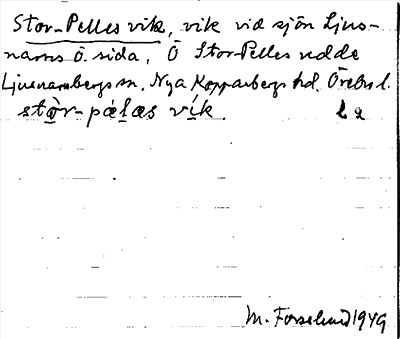 Stor-Pelles vik, vik vid sjön Ljus-
narns Ö sida, Ö Stor-Pelles udde
Ljusnarsbergs sn. Nya Kopparbergs hd. Örebro l.
stòr-pæ̀læs vík
M. Forslund 1949